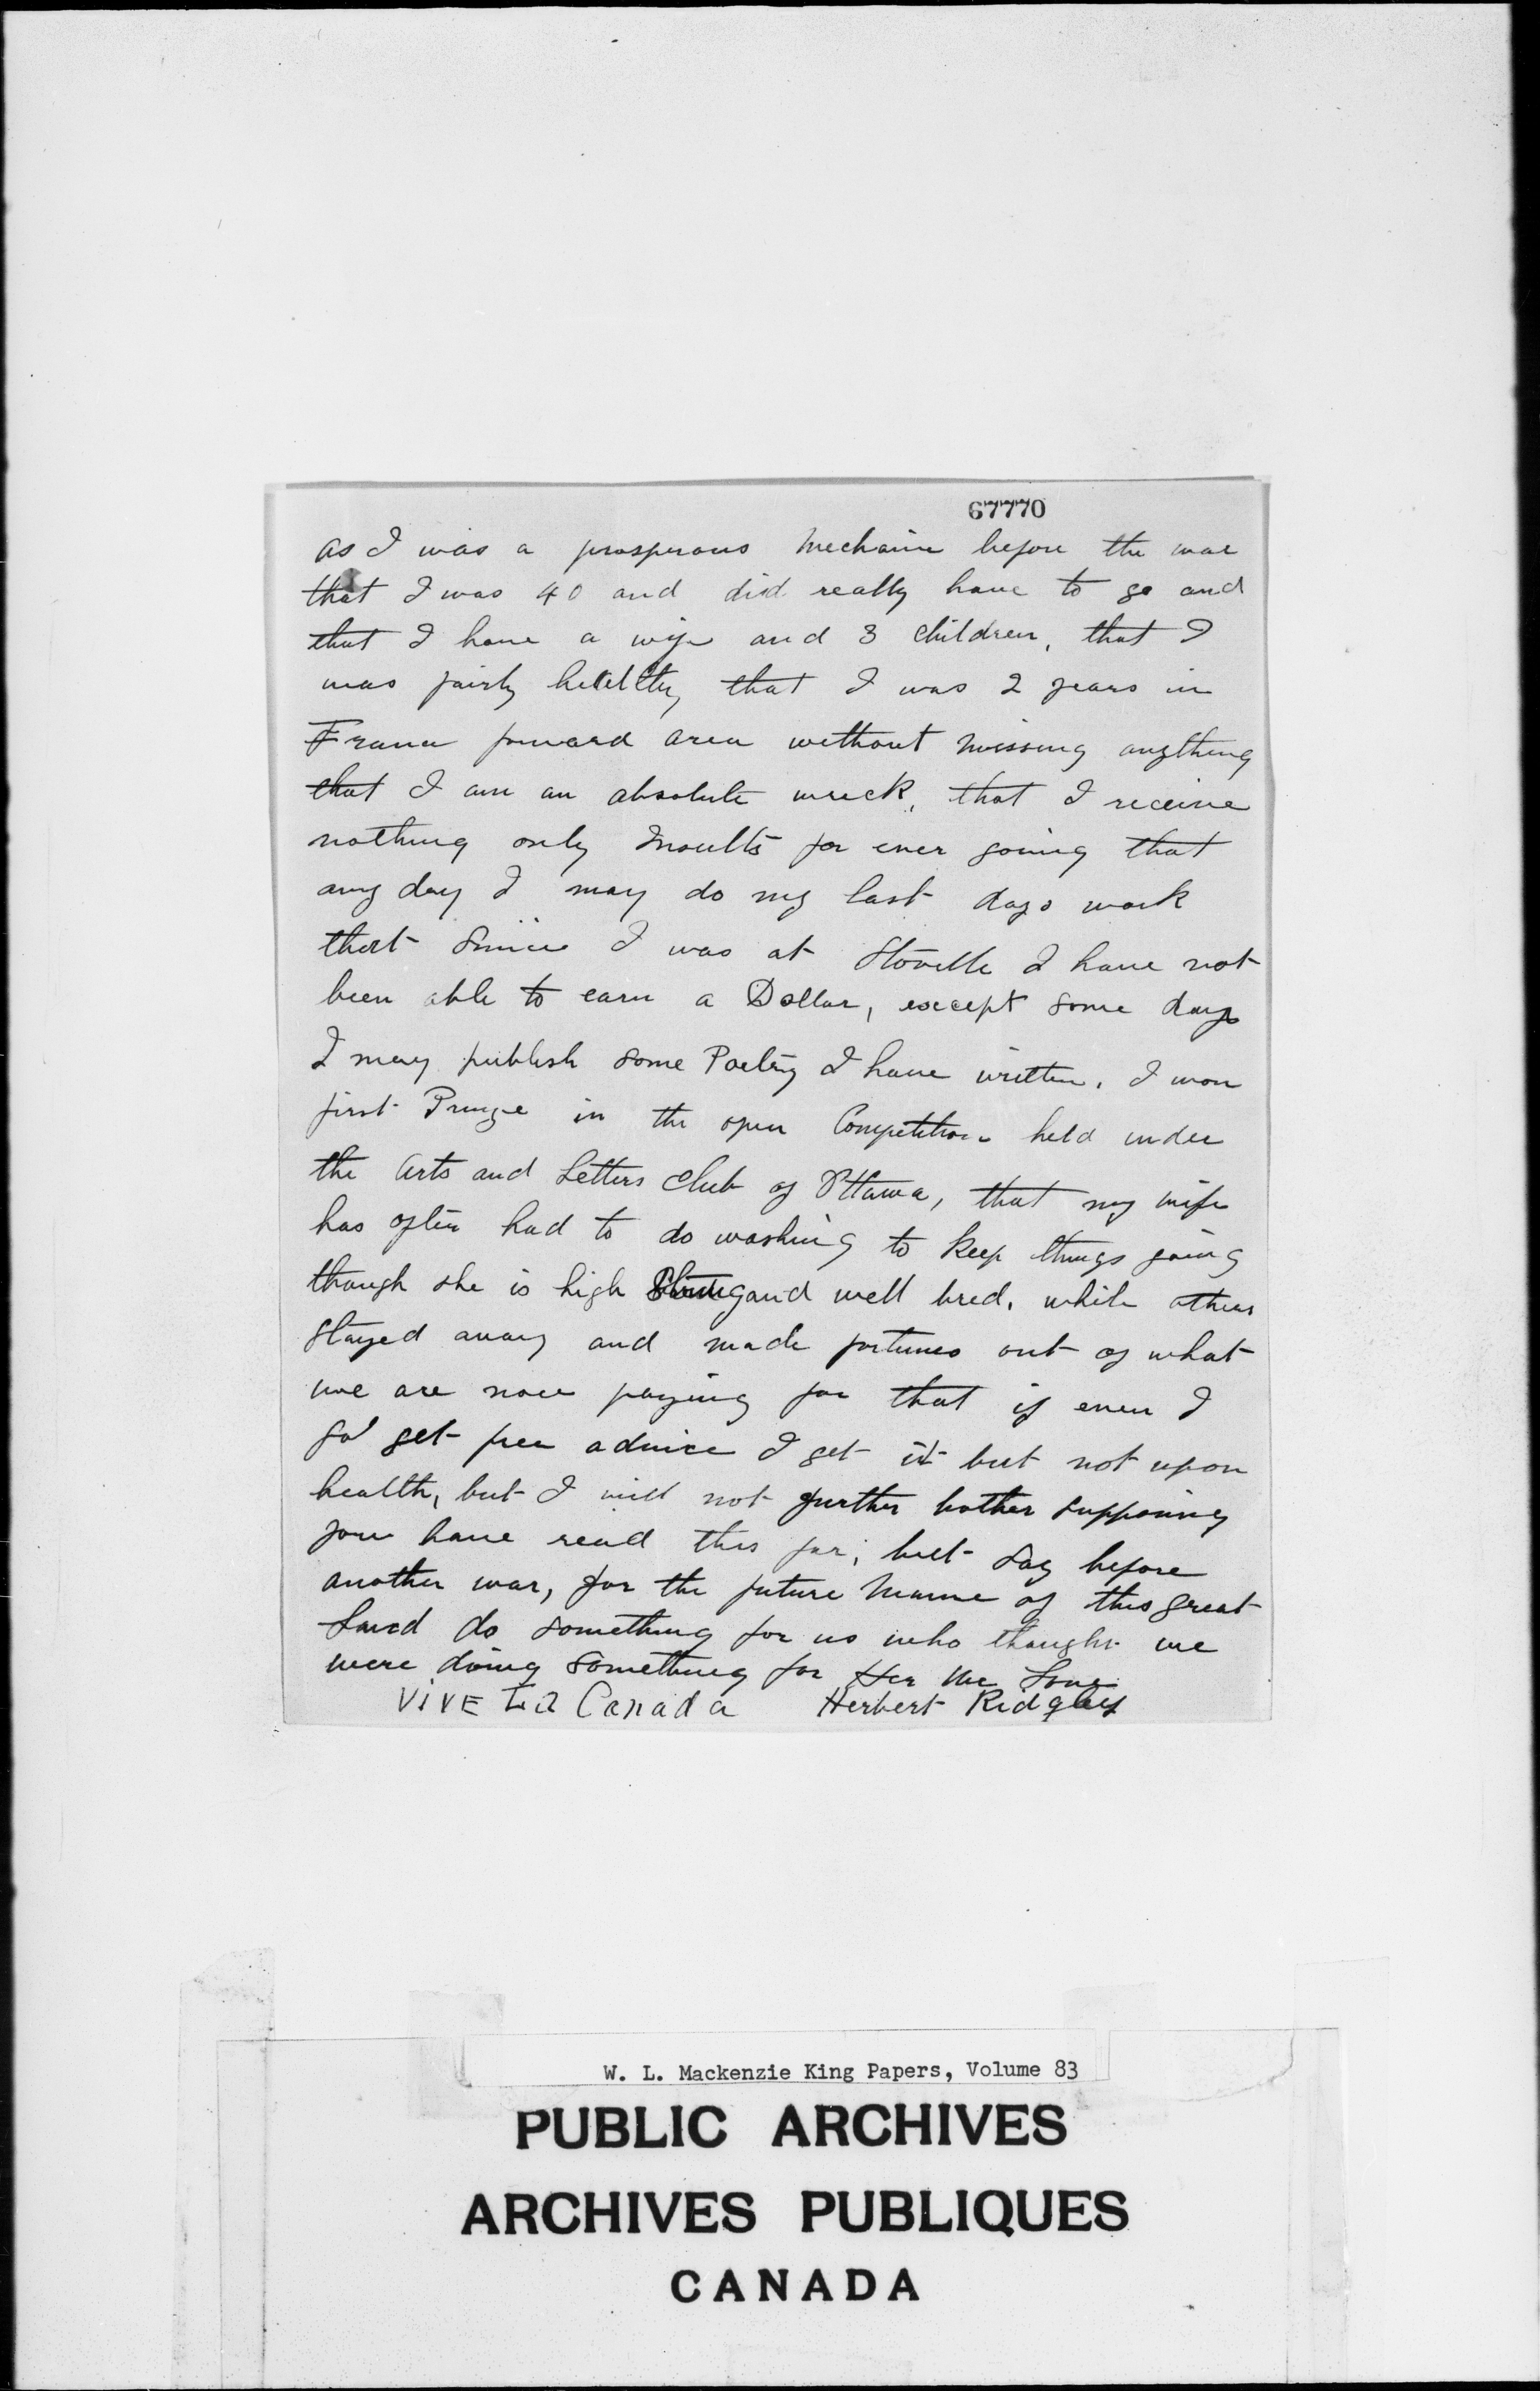 67770
as I was a prosperous Mechanic before the war
that I was 40 and did really have to go and
that I have a wife and 3 children, that I
was fairly healthy, that I was 2 years in
France forward area without missing anything
that I am an absolute wreck, that I receive
nothing only Insults for ever going that
any day I may do my last days work
that since I was at I have not
been able to earn a Dollar, except some days
I may publish some Poetry I have written. I won
first in the open Competition held under
the Arts and Letters Club of Ottawa, that my wife
has often had to do washing to keep things going
though she is high and well bred. while others
stayed away and made fortunes out of what
we are now paying for that if even I
go get free advice I get it but not upon
health, but I will not further bother supposing
you have read this far, but say before
another war, for the future of this great
Land do something for us who thought we
were doing something for Her We Love
VIVE La Canada Herbert Ridgley
W. L. Mackenzie King Papers, Volume 83
PUBLIC ARCHIVES
ARCHIVES PUBLIQUES
CANADA